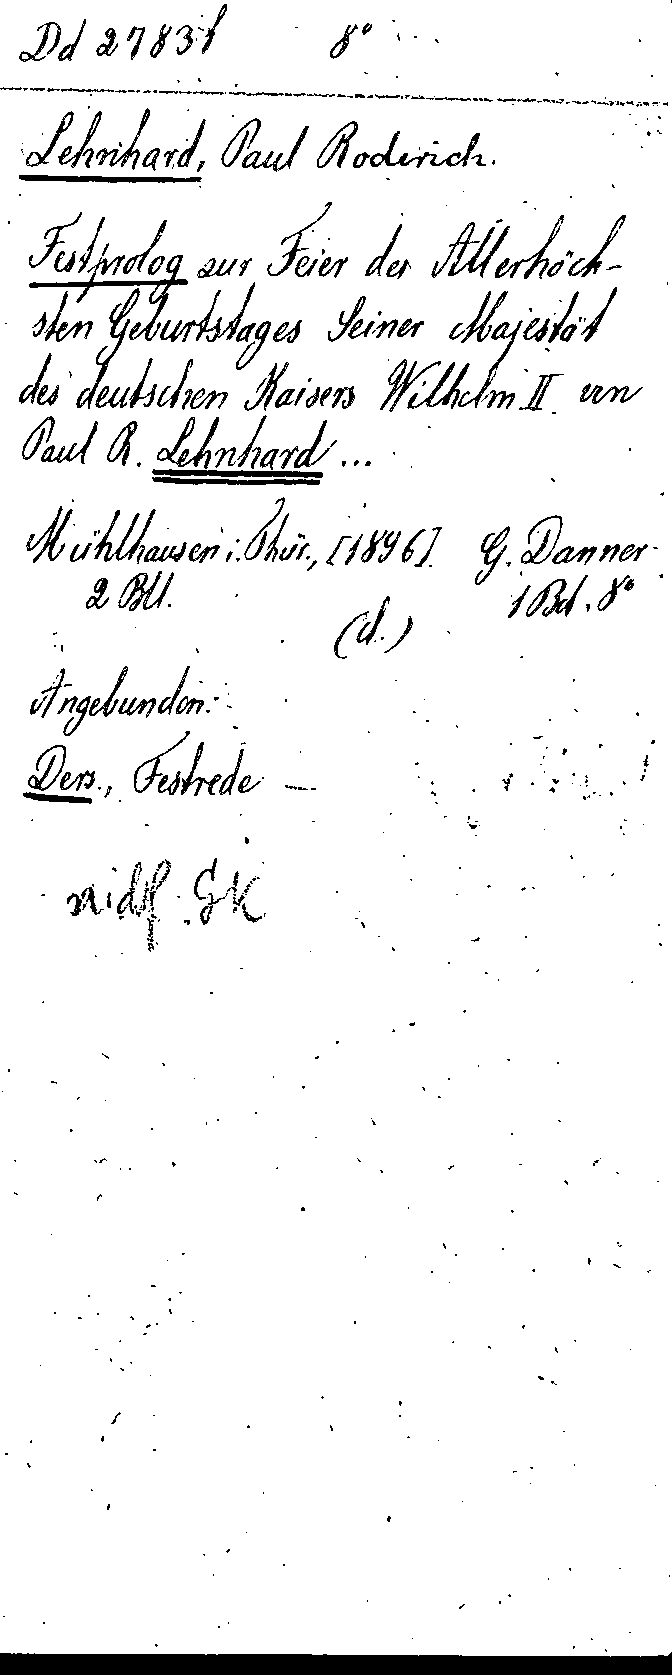 Dd 27831 8°
Lehnhard, Paul Roderich.
Festprolog zur Feier des Allerhöch-
sten Geburtstages Seiner Majestät
des deutschen Kaisers Wilhelm II. von
Paul R. Lehnhard ...
Mühlhausen i. Thür., [1896]. G. Danner
2 Bll. 1 Bd. 8°
(d.)
Angebunden:
Ders., Festrede —
GK